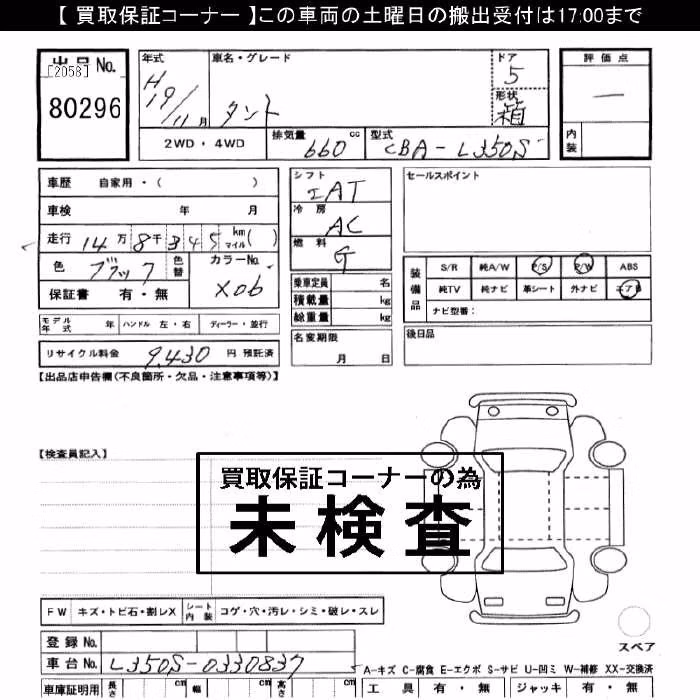 【 買取保証コーナー 】この車両の土曜日の搬出受付は17:00まで
出品No.
[2058]
80296
年式
H19/11月
車名・グレード
タント
ドア
5
形状
箱
評価点
―
内装
2WD・4WD
排気量
660 cc
型式
CBA-L350S
車歴 自家用・( )
車検 年 月
走行 14万8千345 km マイル( )
色 ブラック 色替
カラーNo.
X06
保証書 有・無
シフト
IAT
冷房
AC
燃料
G
乗車定員 名
積載量 kg
総重量 kg
名変期限
月 日
セールスポイント
装備品
S/R 純A/W P/S P/W ABS
純TV 純ナビ 革シート 外ナビ エアB
ナビ型番:
後日品
モデル年式 年 ハンドル 左・右 ディーラー・並行
リサイクル料金 9,430 円 預託済
【出品店申告欄(不良箇所・欠品・注意事項等)】
【検査員記入】
買取保証コーナーの為
未検査
FW キズ・トビ石・割レX シート内装 コゲ・穴・汚レ・シミ・破レ・スレ
スペア
登録No.
車台No. L350S-0330837
A-キズ C-腐食 E-エクボ S-サビ U-凹ミ W-補修 XX-交換済
車庫証明用 長さ cm 幅 cm 高さ cm
工具 有・無 ジャッキ 有・無